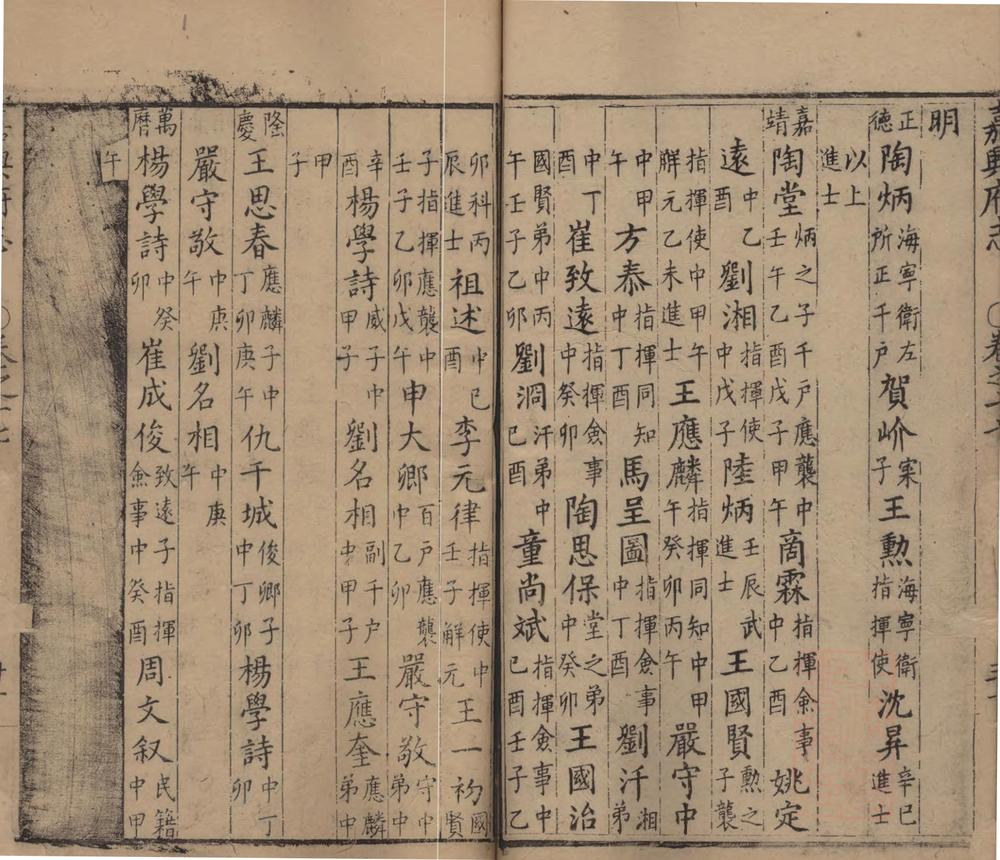 嘉興府志　○卷之十七
明
正德　陶炳海寧衛左所正千戶　賀岕寀子　王勲海寧衛指揮使　沈昇辛巳進士
以上進士
嘉靖　陶堂炳之子千戶應襲中壬午乙酉戊子甲午　商霖指揮僉事中乙酉　姚定
遠中乙酉　劉湘指揮使中戊子　陸炳壬辰武進士　王國賢勲之子襲
指揮使中甲午解元乙未進士　王應麟指揮同知中甲午癸卯丙午　嚴守中
中甲午　方泰指揮同知中丁酉　馬呈圖指揮僉事中丁酉　劉汗湘弟
中丁酉　崔致遠指揮僉事中癸卯　陶思保堂之弟中癸卯　王國治
國賢弟中丙午壬子乙卯　劉泂汗弟中己酉　童尚斌指揮僉事中己酉壬子乙
卯科丙辰進士　祖述中己酉　李元律指揮使中壬子解元　王一礿國賢
子指揮應襲中壬子乙卯戊午　申大卿百戶應襲中乙卯　嚴守敬守中弟中
辛酉　楊學詩威子中甲子　劉名相副千戶中甲子　王應奎應麟弟中
甲子
隆慶　王思春應麟子中丁卯庚午　仇千城俊卿子中丁卯　楊學詩中丁卯
嚴守敬中庚午　劉名相中庚午
萬曆　楊學詩中癸卯　崔成俊致遠子指揮僉事中癸酉　周文叙民籍中甲
午